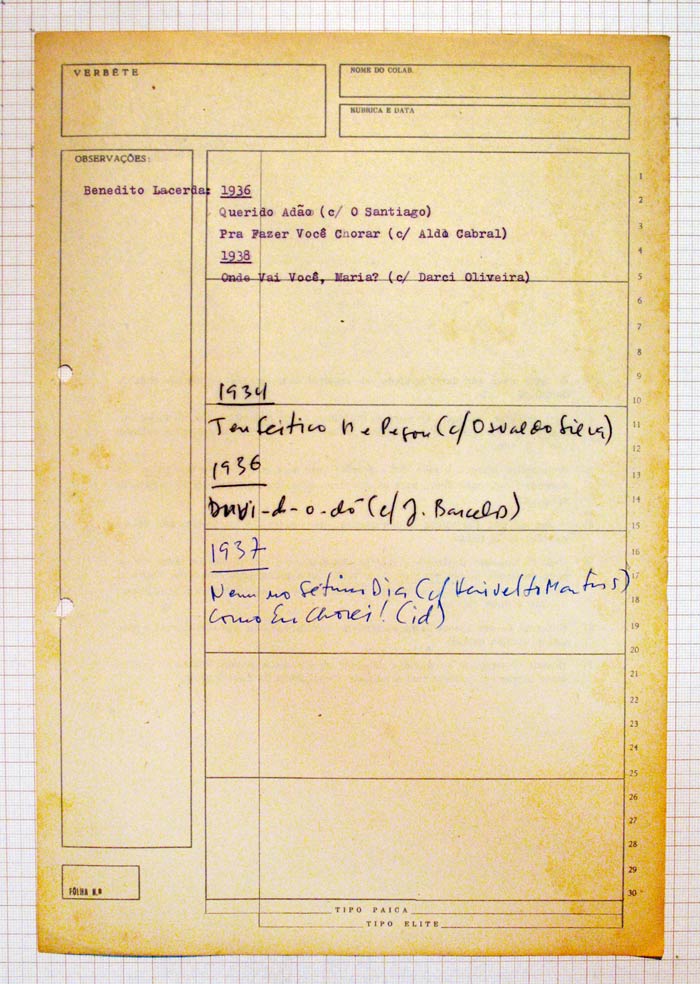 VERBÊTE
NOME DO COLAB.
RUBRICA E DATA
OBSERVAÇÕES:
Benedito Lacerda: 1936
Querido Adão (c/ O Santiago)
Pra Fazer Você Chorar (c/ Aldo Cabral)
1938
Onde Vai Você, Maria? (c/ Darci Oliveira)
1934
Teu Feitico Me Pegou (c/ Osvaldo Silva)
1936
Duvi-d-o-dó (c/ J. Barcelos)
1937
Nem no Sétimo Dia (c/ Herivelto Martins)
Como Eu Chorei! (id)
1
2
3
4
5
6
7
8
9
10
11
12
13
14
15
16
17
18
19
20
21
22
23
24
25
26
27
28
29
30
FÔLHA N.º
TIPO PAICA
TIPO ELITE